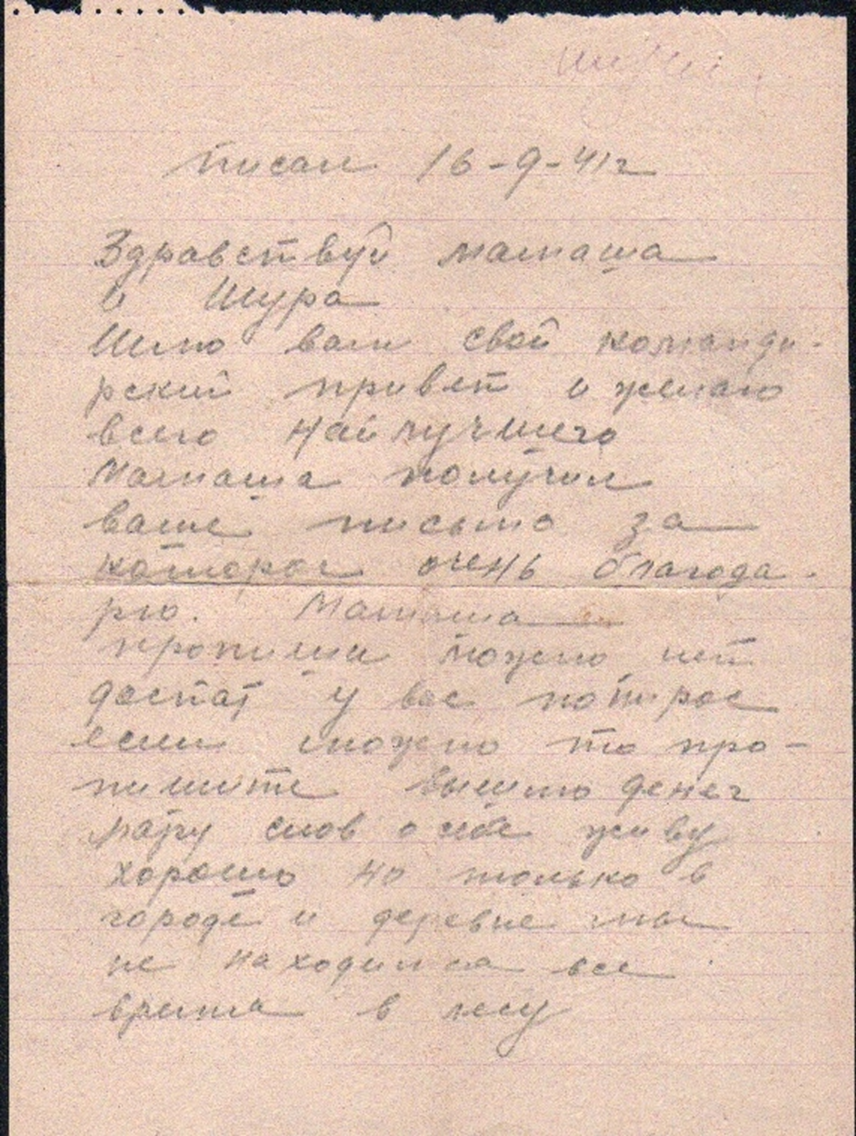 писал 16-9-41г
Здравствуй мамаша
и Шура
Шлю вам свой команди-
рский привет и желаю
всего найлучшего
Мамаша получил
ваше письмо за
которое очень благода-
рю. Мамаша
пропиши можно нет
достат у вас папирос
если можно то про-
пишите вышлю денег
пару слов о себе живу
хорошо но только в
городе и деревне мы
не находимса все
время в лесу